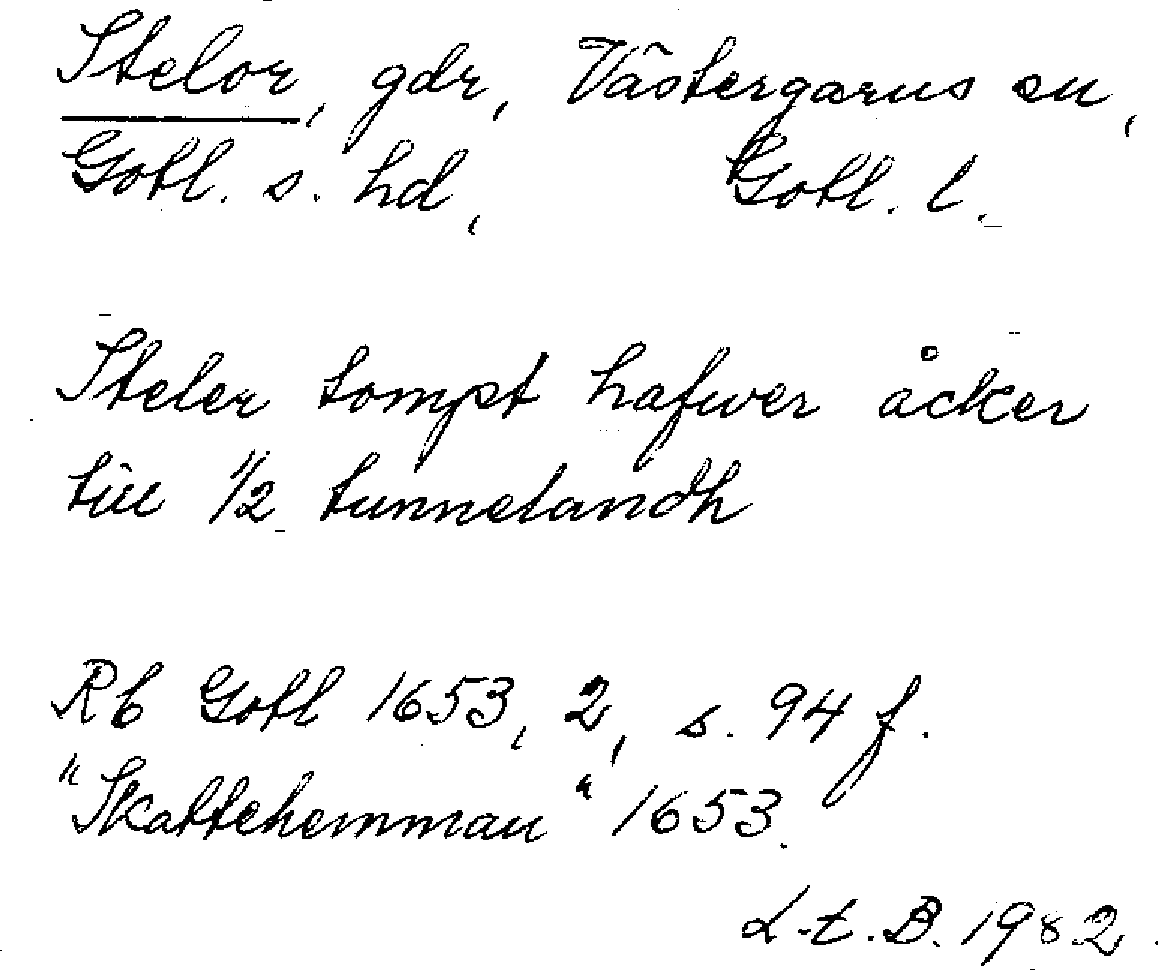 Stelor, gdr, Västergarns sn,
Gotl. s. hd, Gotl. l.
Steler tompt hafwer åcker
till 1/2 tunnelandh
Rb Gotl 1653, 2, s. 94 f.
"Skattehemman" 1653.
L-t. B. 1982.